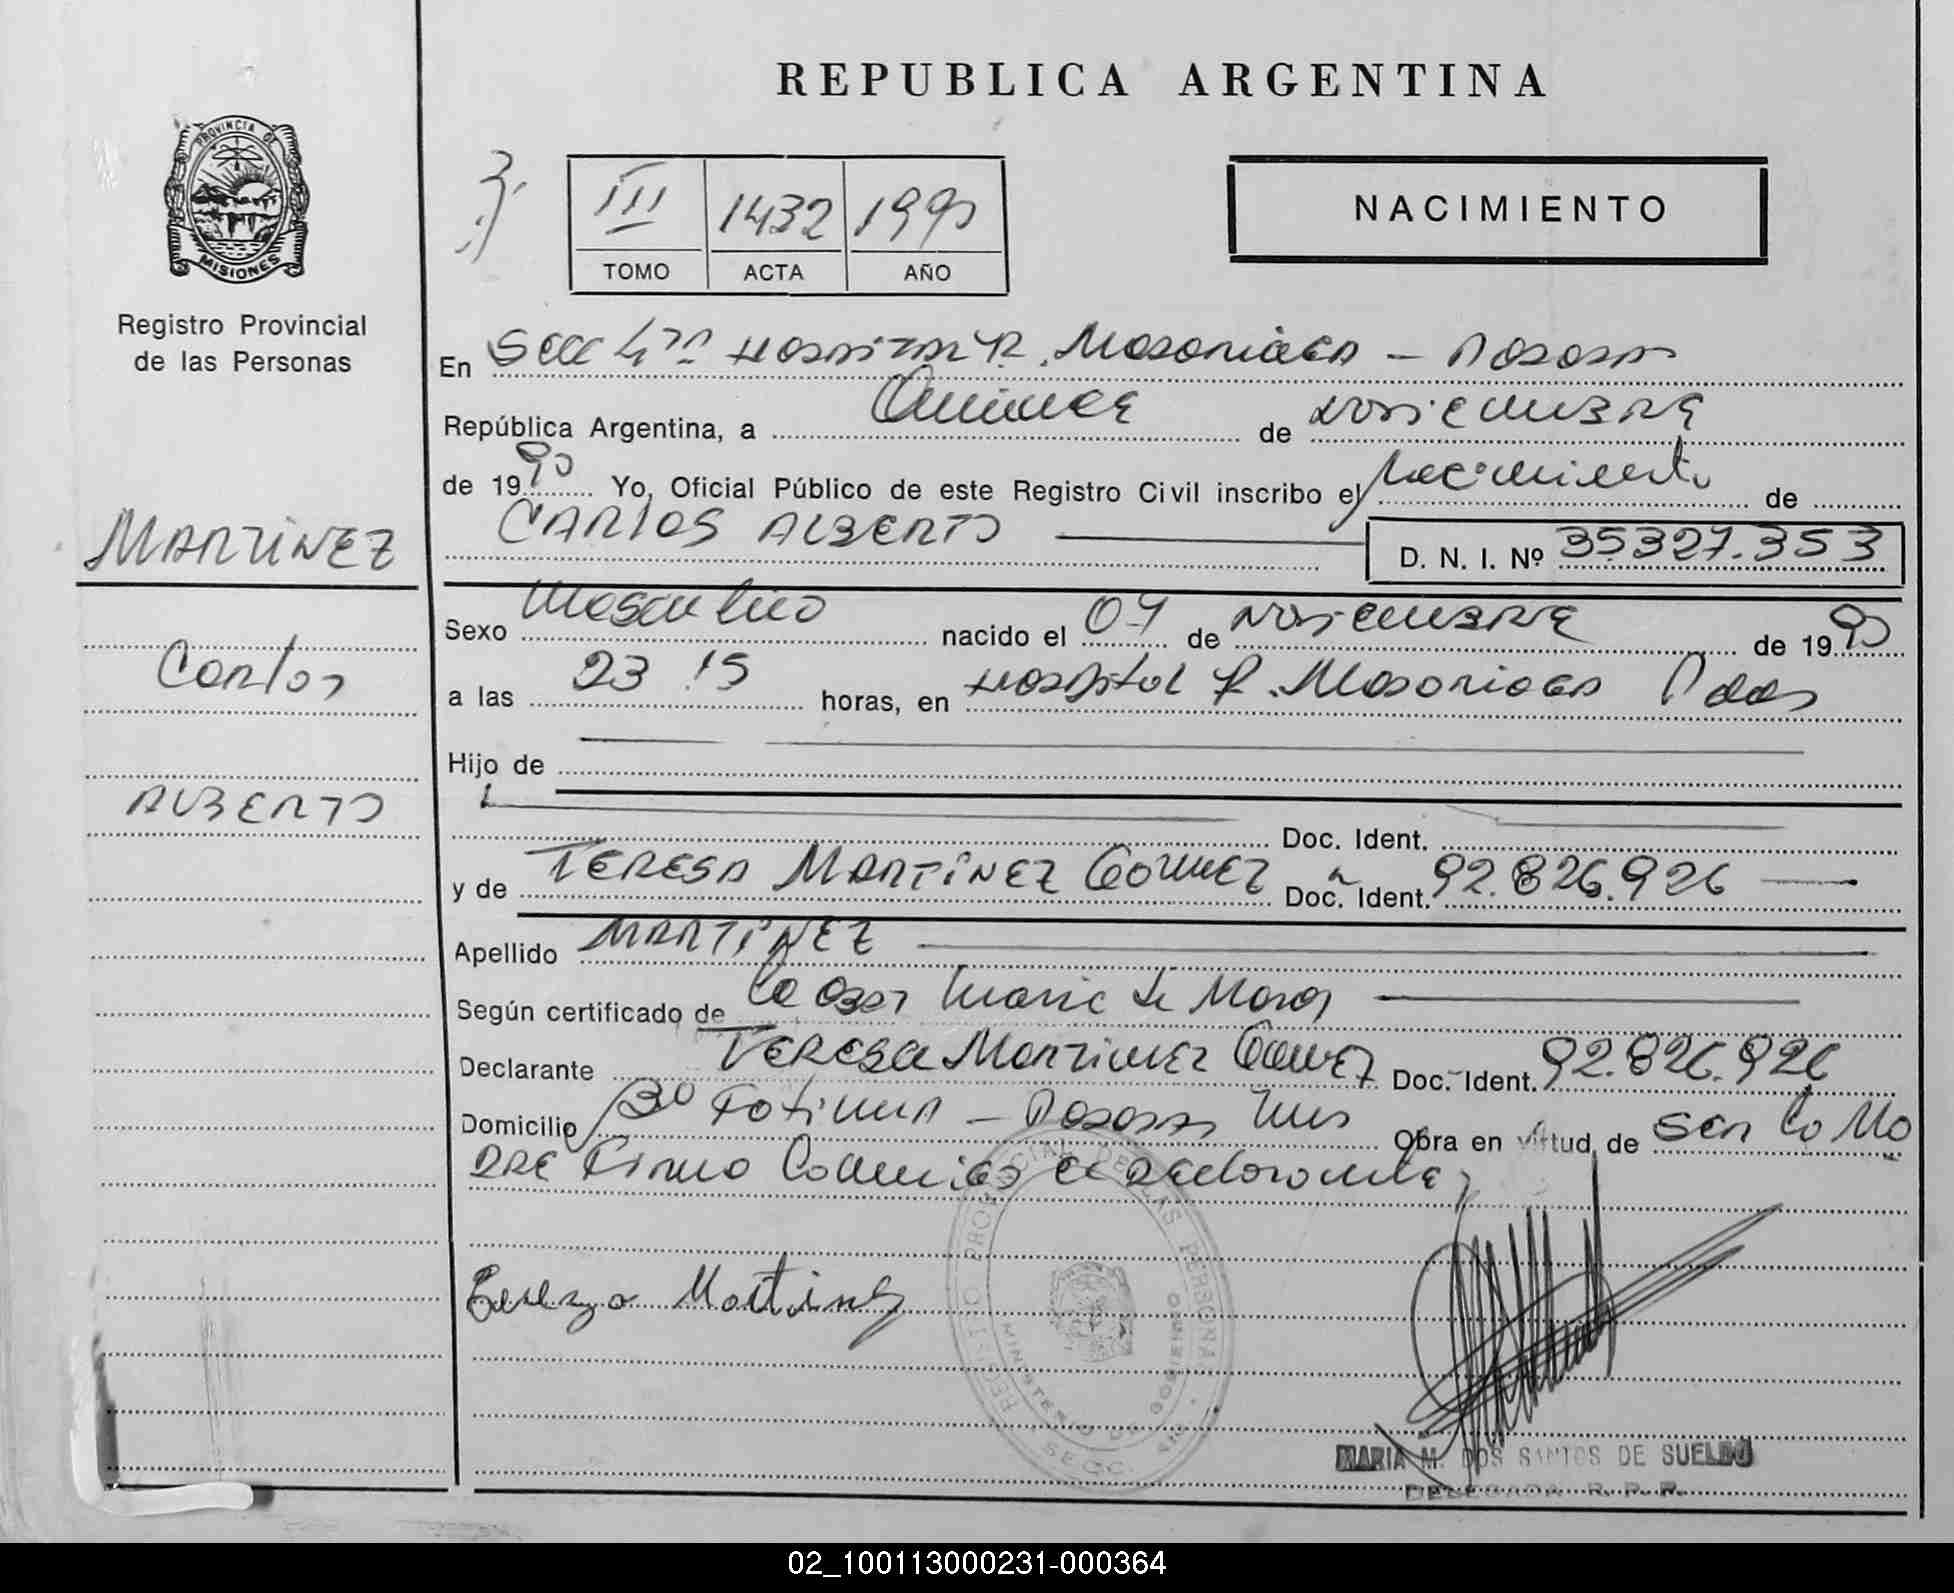 REPUBLICA ARGENTINA
PROVINCIA DE
MISIONES
Registro Provincial
de las Personas
III 1432 1990
TOMO ACTA AÑO
NACIMIENTO
En Secc 4ta Hospital R. Madariaga - Posadas
República Argentina, a Quince de Noviembre
de 1990 Yo, Oficial Público de este Registro Civil inscribo el Nacimiento de
CARLOS ALBERTO D. N. I. Nº 35327.353
MARTINEZ
Carlos
ALBERTO
Sexo Masculino nacido el 04 de Noviembre de 1990
a las 23.15 horas, en Hospital R. Madariaga Pdas
Hijo de
Doc. Ident.
y de TERESA MARTINEZ GOMEZ Doc. Ident. 92.826.926
Apellido MARTINEZ
Según certificado de la Obst
Declarante TERESA Martinez Gomez Doc. Ident. 92.826.926
Domicilio Bº Fatima - Posadas Mnes Obra en virtud de Ser la Ma
dre Firma Conmigo el Declarante,
REGISTRO PROVINCIAL DE LAS PERSONAS
MINISTERIO DE GOBIERNO
SECC.
MARIA M. DOS SANTOS DE SUELDO
DELEGADA R. P. P.
02_100113000231-000364